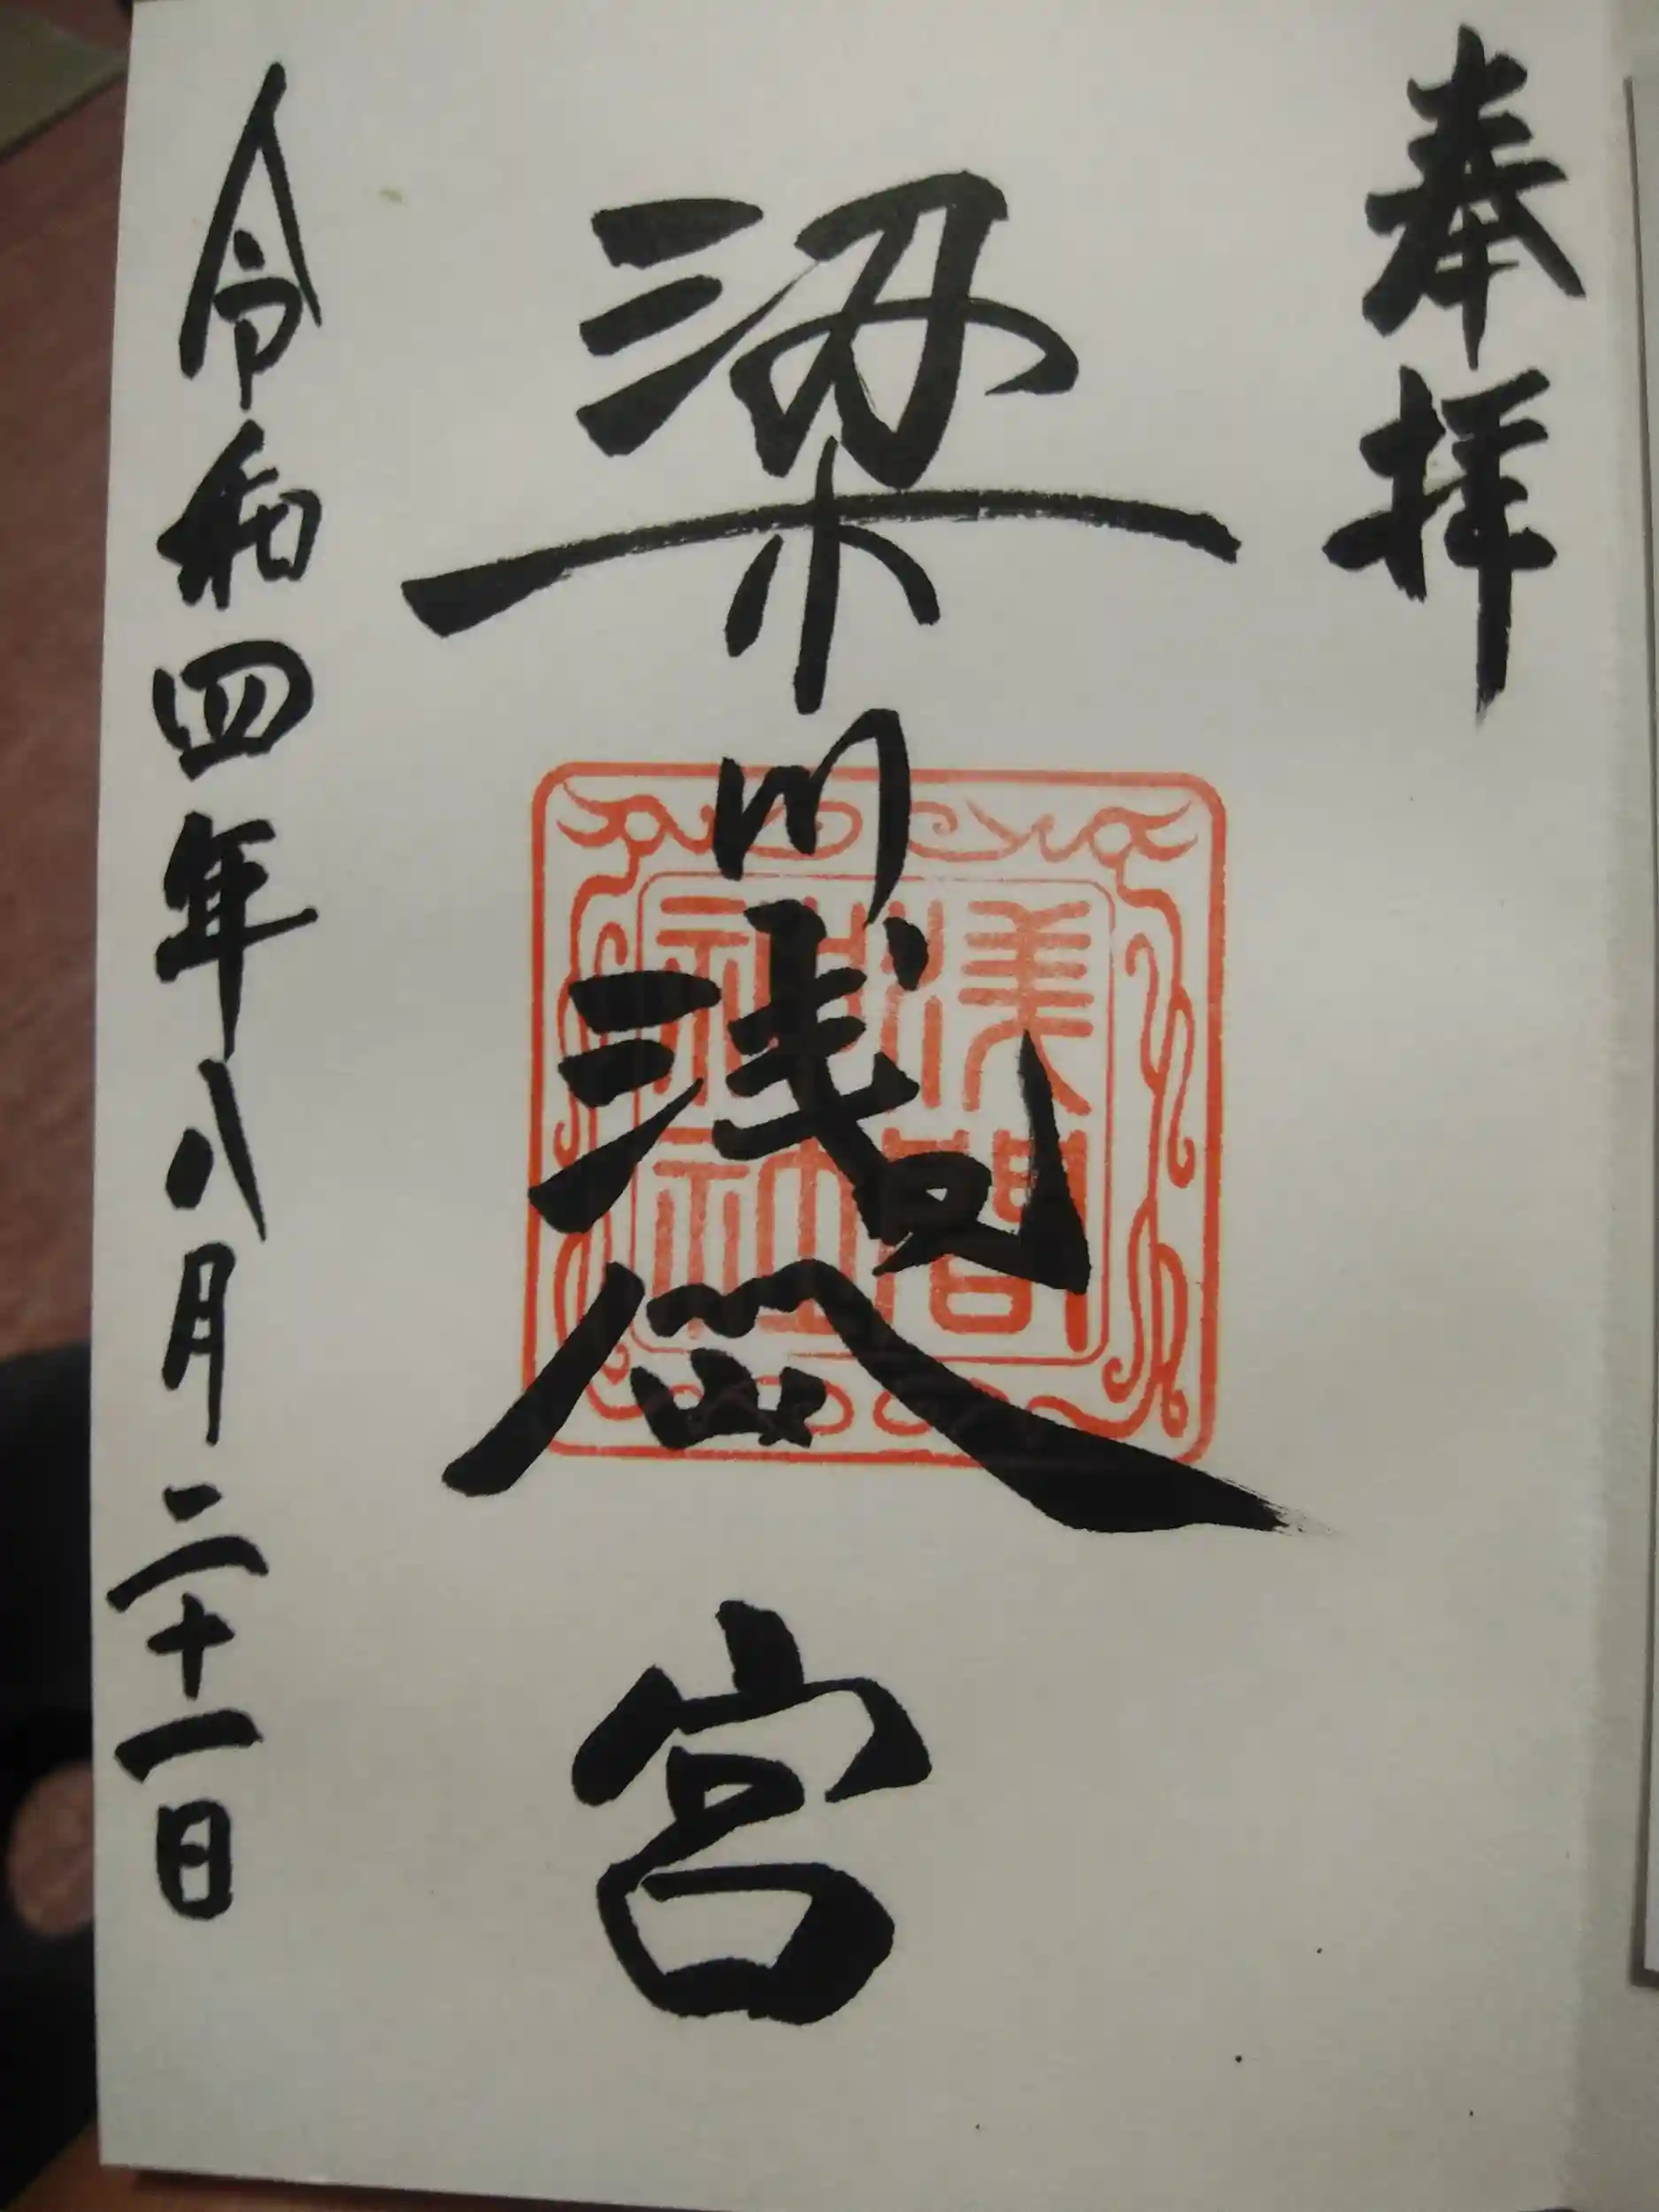 奉拝
梁川浅間宮
淺間
神社
令和四年八月二十一日